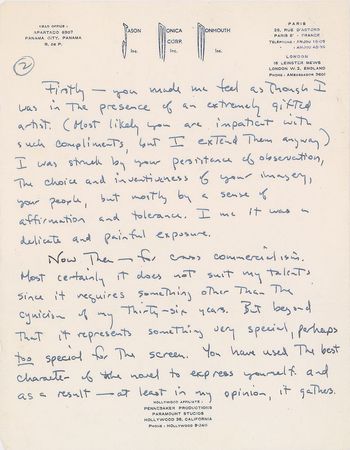 MAIN OFFICE:
APARTADO 8307
PANAMA CITY, PANAMA
R. DE P.
JASON
INC.
MONICA
CORP.
INC.
MONMOUTH
INC.
PARIS
25, RUE D'ASTORG
PARIS 8e - FRANCE
TELEPHONE:
LONDON
15 LEINSTER MEWS
LONDON W. 2, ENGLAND
PHONE: AMBASSADOR 3601
2
Firstly — you made me feel as though I
was in the presence of an extremely gifted
artist. (Most likely you are impatient with
such compliments, but I extend them anyway)
I was struck by your persistence of observation,
the choice and inventiveness of your imagery,
your people, but mostly by a sense of
affirmation and tolerance. I me it was a
delicate and painful exposure.
Now Then — for crass commercialism.
Most certainly it does not suit my talents
since it requires something other than the
cynicism of my thirty-six years. But beyond
that it represents something very special, perhaps
too special for the screen. You have used the best
character of the novel to express yourself and
as a result — at least in my opinion, it gathers
HOLLYWOOD AFFILIATE:
PENNEBAKER PRODUCTIONS
PARAMOUNT STUDIOS
HOLLYWOOD 38, CALIFORNIA
PHONE: HOLLYWOOD 9-2411